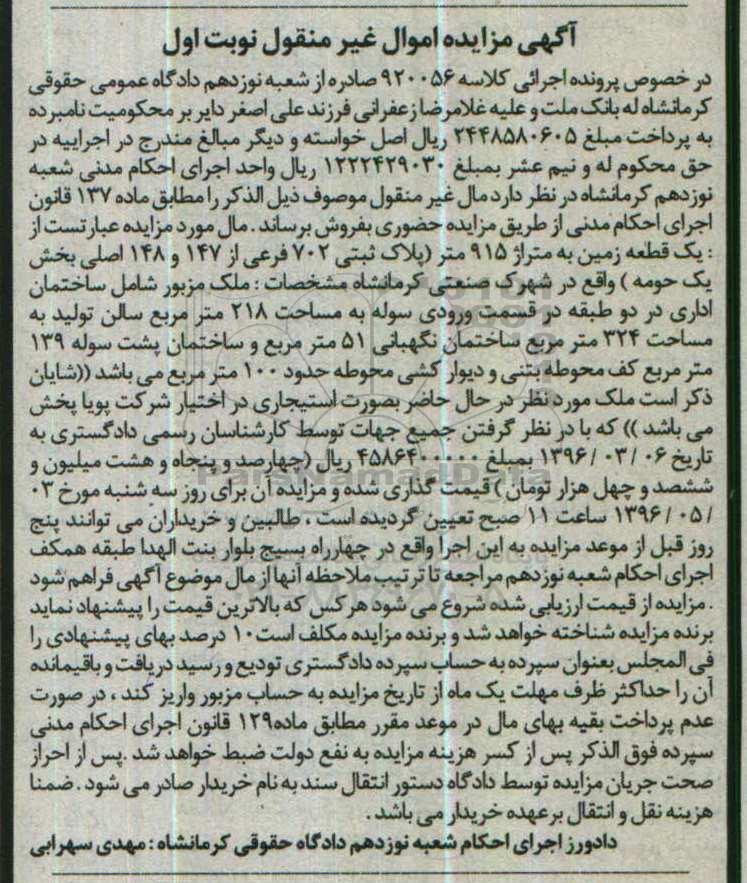 آگهی مزایده اموال غیر منقول نوبت اول
در خصوص پرونده اجرائی کلاسه ۹۲۰۰۵۶ صادره از شعبه نوزدهم دادگاه عمومی حقوقی
کرمانشاه له بانک ملت و علیه غلامرضا زعفرانی فرزند علی اصغر دایر بر محکومیت نامبرده
به پرداخت مبلغ ۲۴۴۸۵۸۰۶۰۵ ریال اصل خواسته و دیگر مبالغ مندرج در اجراییه در
حق محکوم له و نیم عشر بمبلغ ۱۲۲۲۴۲۹۰۳۰ ریال واحد اجرای احکام مدنی شعبه
نوزدهم کرمانشاه در نظر دارد مال غیر منقول موصوف ذیل الذکر را مطابق ماده ۱۳۷ قانون
اجرای احکام مدنی از طریق مزایده حضوری بفروش برساند . مال مورد مزایده عبارتست از
: یک قطعه زمین به متراژ ۹۱۵ متر (پلاک ثبتی ۷۰۲ فرعی از ۱۴۷ و ۱۴۸ اصلی بخش
یک حومه ) واقع در شهرک صنعتی کرمانشاه مشخصات : ملک مزبور شامل ساختمان
اداری در دو طبقه در قسمت ورودی سوله به مساحت ۲۱۸ متر مربع سالن تولید به
مساحت ۳۲۴ متر مربع ساختمان نگهبانی ۵۱ متر مربع و ساختمان پشت سوله ۱۳۹
متر مربع کف محوطه بتنی و دیوار کشی محوطه حدود ۱۰۰ متر مربع می باشد ((شایان
ذکر است ملک مورد نظر در حال حاضر بصورت استیجاری در اختیار شرکت پویا پخش
می باشد )) که با در نظر گرفتن جمیع جهات توسط کارشناسان رسمی دادگستری به
تاریخ ۰۶ / ۰۳ / ۱۳۹۶ بمبلغ ۴۵۸۶۴۰۰۰۰۰ ریال (چهارصد و پنجاه و هشت میلیون و
ششصد و چهل هزار تومان ) قیمت گذاری شده و مزایده آن برای روز سه شنبه مورخ ۰۳
/ ۰۵ / ۱۳۹۶ ساعت ۱۱ صبح تعیین گردیده است ، طالبین و خریداران می توانند پنج
روز قبل از موعد مزایده به این اجرا واقع در چهارراه بسیج بلوار بنت الهدا طبقه همکف
اجرای احکام شعبه نوزدهم مراجعه تا ترتیب ملاحظه آنها از مال موضوع آگهی فراهم شود
. مزایده از قیمت ارزیابی شده شروع می شود هر کس که بالاترین قیمت را پیشنهاد نماید
برنده مزایده شناخته خواهد شد و برنده مزایده مکلف است ۱۰ درصد بهای پیشنهادی را
فی المجلس بعنوان سپرده به حساب سپرده دادگستری تودیع و رسید دریافت و باقیمانده
آن را حداکثر ظرف مهلت یک ماه از تاریخ مزایده به حساب مزبور واریز کند ، در صورت
عدم پرداخت بقیه بهای مال در موعد مقرر مطابق ماده۱۲۹ قانون اجرای احکام مدنی
سپرده فوق الذکر پس از کسر هزینه مزایده به نفع دولت ضبط خواهد شد .پس از احراز
صحت جریان مزایده توسط دادگاه دستور انتقال سند به نام خریدار صادر می شود . ضمنا
هزینه نقل و انتقال برعهده خریدار می باشد .
دادورز اجرای احکام شعبه نوزدهم دادگاه حقوقی کرمانشاه : مهدی سهرابی
ParsNamadData